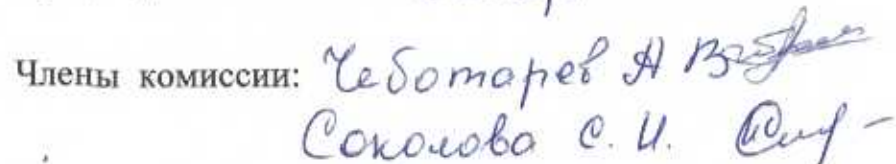 Члены комиссии: Чеботарев А В
Соколова С. И.